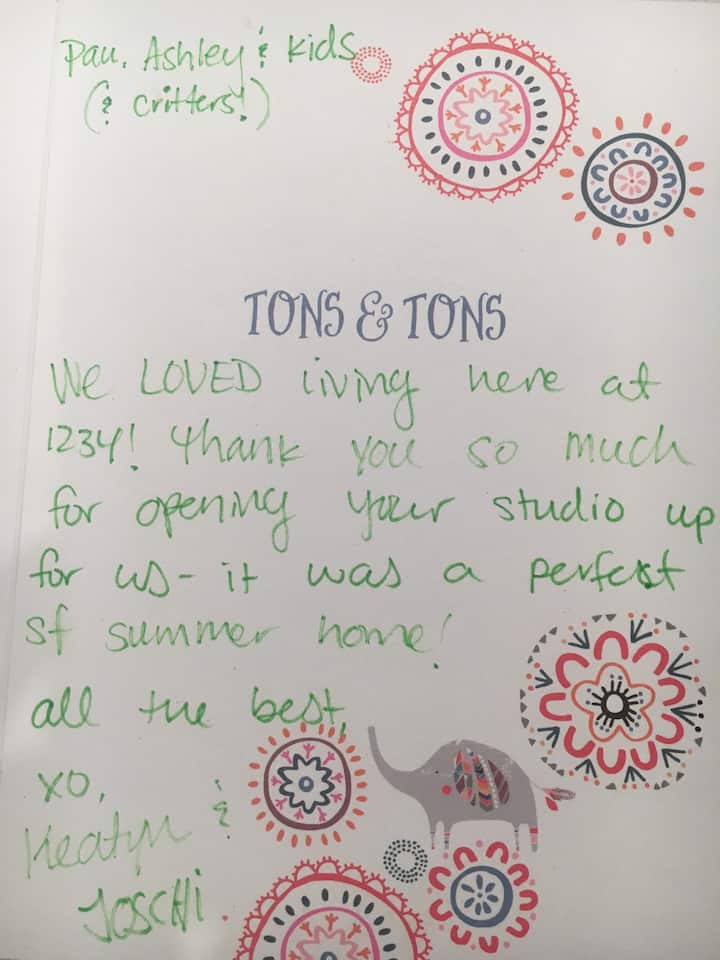 Pau, Ashley & kids
(& critters!)
TONS & TONS
We LOVED living here at
1234! Thank you so much
for opening your studio up
for us- it was a perfect
sf summer home!
all the best,
xo,
Keatyn &
JOSCHI.